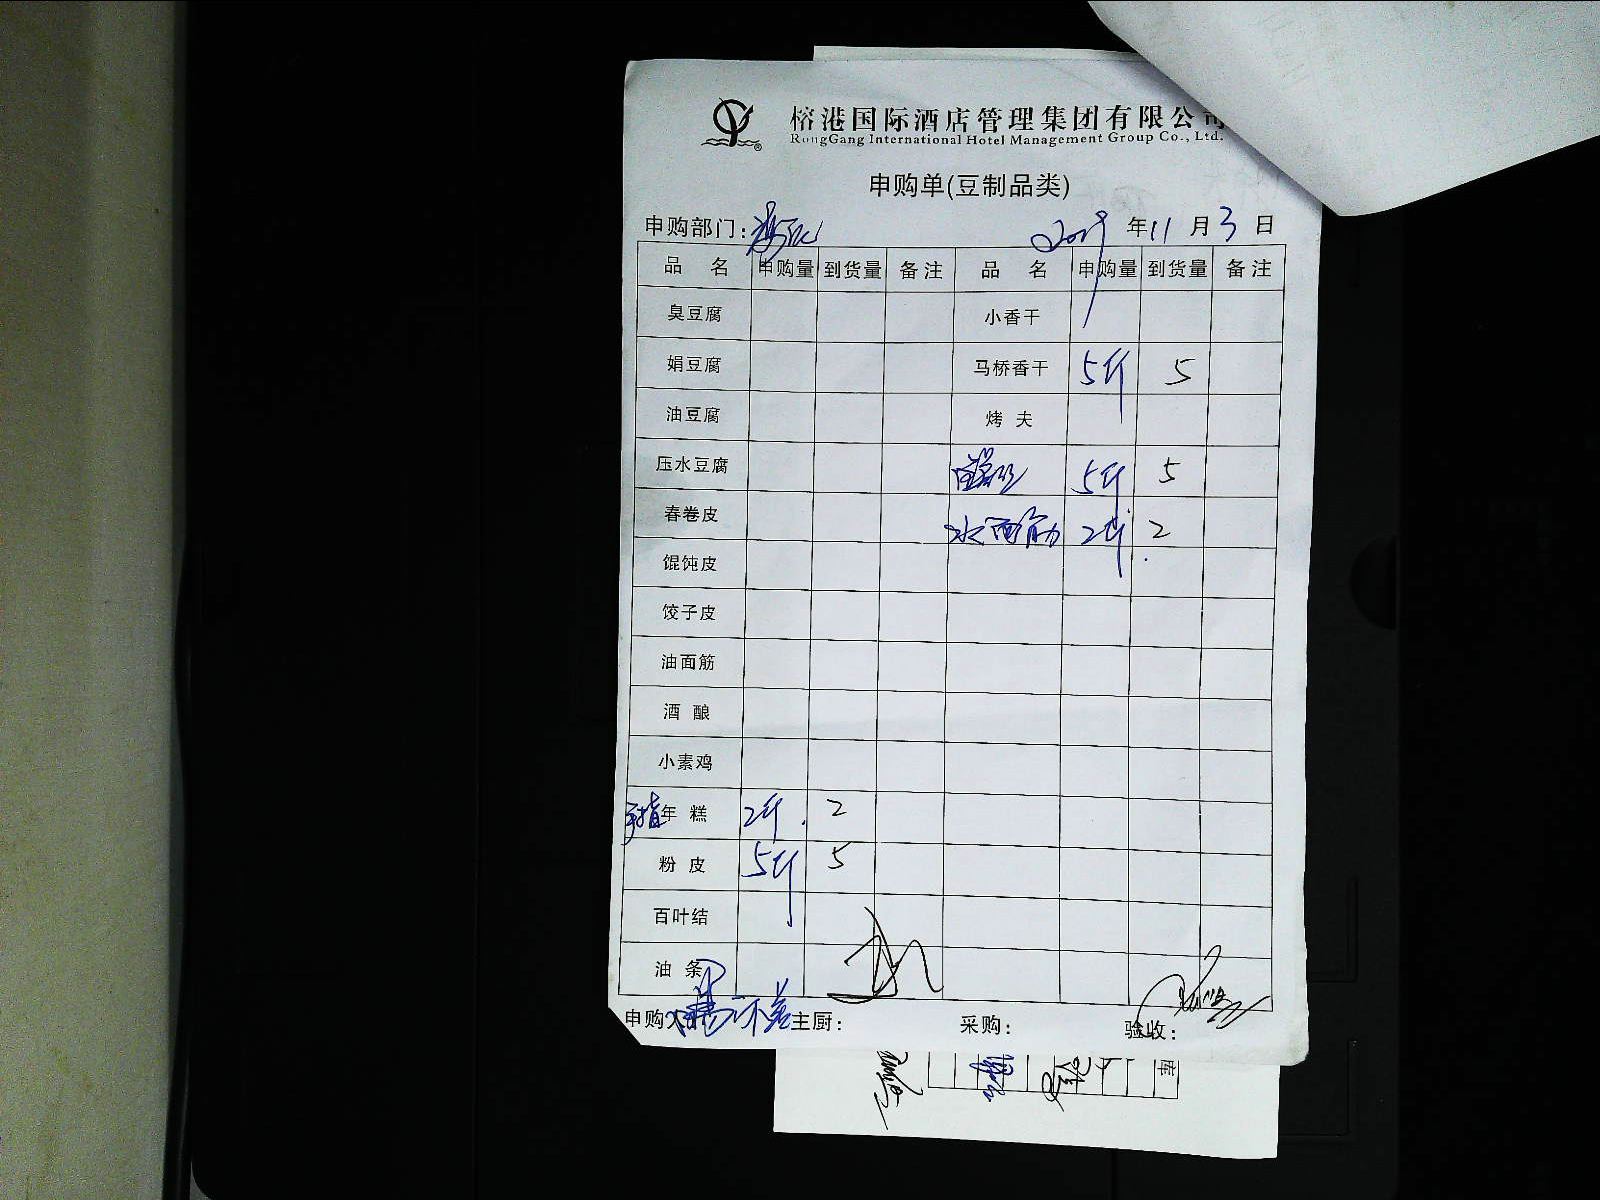 榕港国际酒店管理集团有限公司
RongGang International Hotel Management Group Co., Ltd.
申购单(豆制品类)
申购部门: 2019 年 11 月 3 日
品 名 申购量 到货量 备注 品 名 申购量 到货量 备注
臭豆腐 小香干
娟豆腐 马桥香干 5斤 5
油豆腐 烤 夫
压水豆腐 5斤 5
春卷皮 水面筋 2斤 2
馄饨皮
饺子皮
油面筋
酒 酿
小素鸡
手指年 糕 2斤 2
粉 皮 5斤 5
百叶结
油 条
申购人: 主厨: 采购: 验收:
库